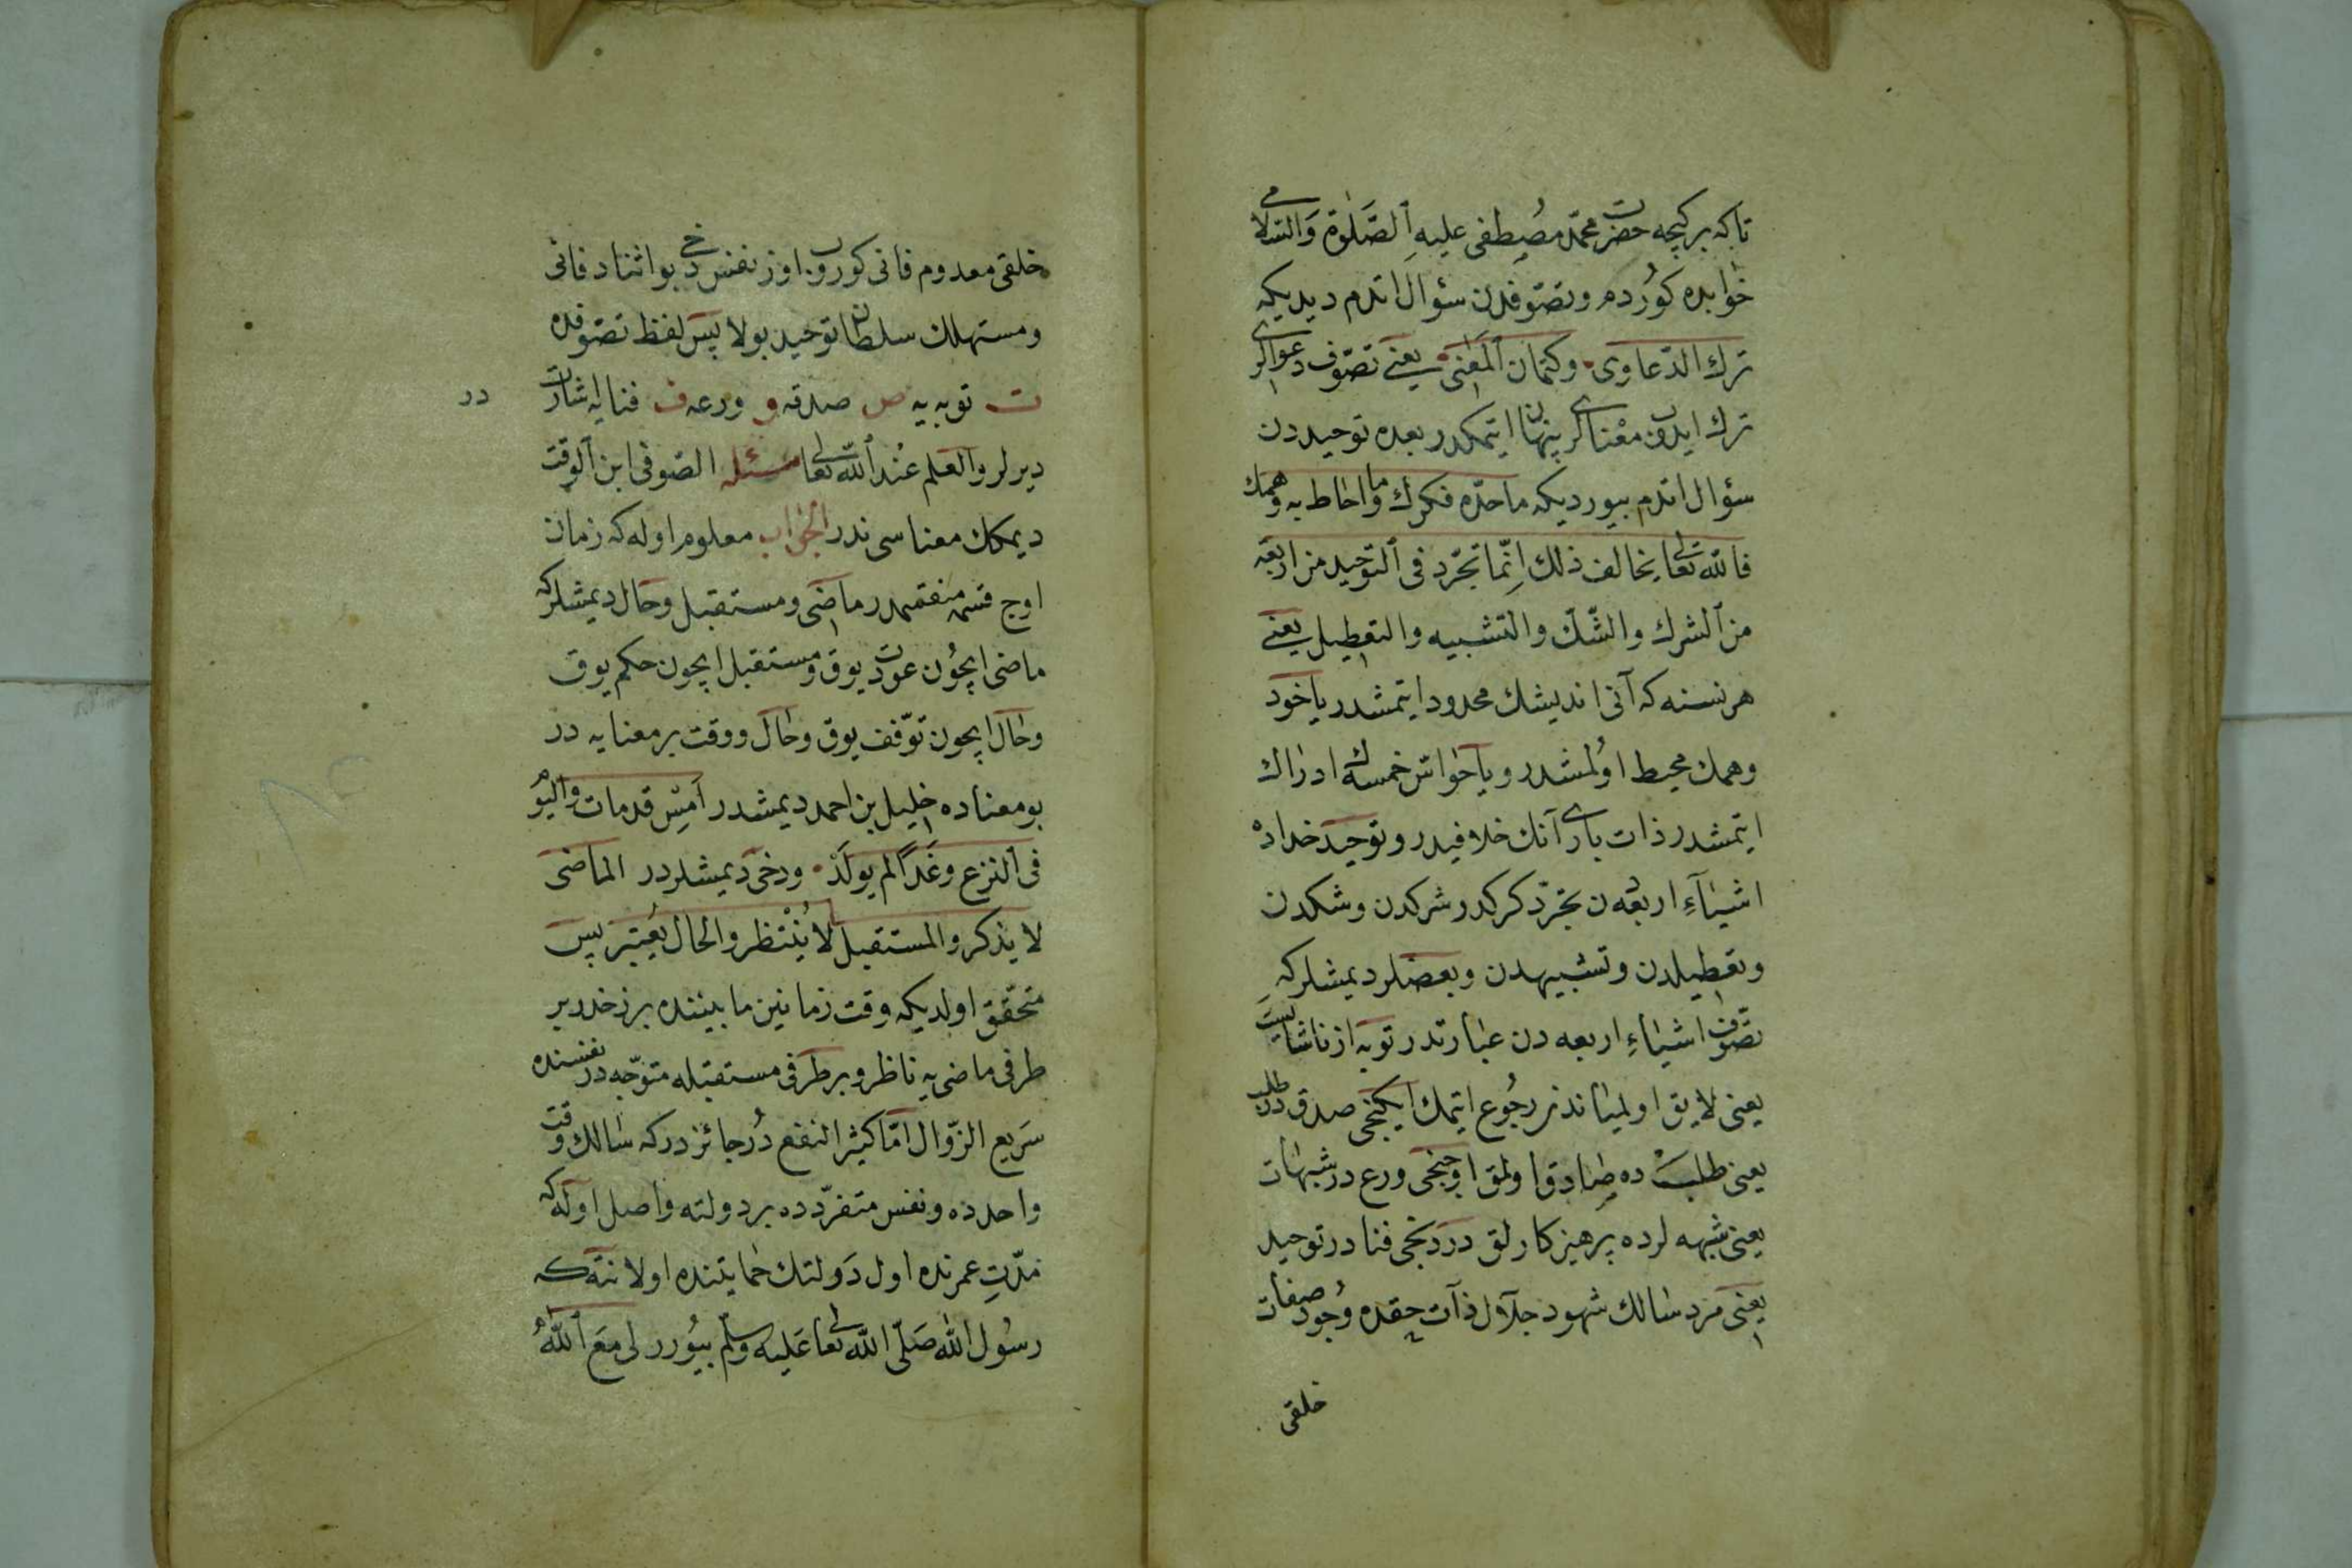 تاكه بركيجه حضرت محمّد مصطفى عليهِ الصّلوة وَالسّلامى
خوابده كوُردم وتصوّفدن سؤال اتدم ديديكه
ترك الدّعاوى وكتمان المَعٰنى يعنى تصوّف دعوالرى
ترك ايدوب معْنالرى پنهان ايتمكدر بعده توحيددن
سؤال اتدم بيورديكه ماحدّه فكرك وما احاط به وهمك
فاللّه تعالى يخالف ذلك اِنّما تجرّد فى التوحيد من اربعة
من الشرك والشّك والتشبيه والتعطيل يعنى
هر نسنه كه آنى انديشك محدود ايتمشدر ياخود
وهمك محيط اوُلمشدر ويا حواسّ خمسه ك ادراك
ايتمشدر ذات بارى آنك خلافيدر وتوحيد خداده
اشيآءِ اربعه دن تجرّد كركدر شركدن وشكدن
وتعطيلدن وتشبيهدن وبعضلر ديمشلركه
تصوّف اشياءِ اربعه دن عبارتدر توبه از ناشايست
يعنى لايق اولمياندن رجُوع ايتمك ايكنجى صدق در طلب
يعنى طلبده صادق اولمق اوچنجى ورع در شبهات
يعنى شبهه لرده پرهيزكارلق دردنجى فنا در توحيد
يعنى مرد سالك شهود جلال ذات حقده وُجود صفات
خلقى
خلقى معدوم فانى كوروب اوز نفس دخى بو اثناد فانى
ومستهلك سلطان توحيد بولا پس لفظ تصوّفده
ت توبه يه ص صدقه و ورعه ف فنايه اشارت در
ديرلر والعلم عنْد اللّه تعالى مسئله الصّوفى ابن الوقت
ديمكك معناسى ندر الجواب معلوم اوله كه زمان
اوچ قسمه منقسمدر ماضى ومستقبل وحال ديمشلركه
ماضى ايچوُن عودت يوق ومستقبل ايچون حكم يوق
وحال ايچون توّقف يوق وحال ووقت بر معنايه در
بو معناده خليل بن احمد ديمشدر اَمسِ قدمات واليوُم
فى النزع وغَداً لم يولَدْ ودخى ديمشلردر الماضى
لا يذكر والمستقبل لا يُنْتظر والحال يُعتبَر پس
متحّقق اولديكه وقت زمانين مابيننده برزخدر بر
طرفى ماضى يه ناظر وبر طرفى مستقبله متوّجه در نفسنده
سَريع الزّوال امّا كثير النفع دُر جائزدركه سالك وقت
واحدده ونفس متفرّدده بر دولته واصل اوله كه
مدّتِ عمرنده اول دَولتك حمايتنده اولا نته كه
رسُول اللّه صَلّى اللّه تعالى عَليه وسلّم بيُورر لى مَعَ اللّهُ